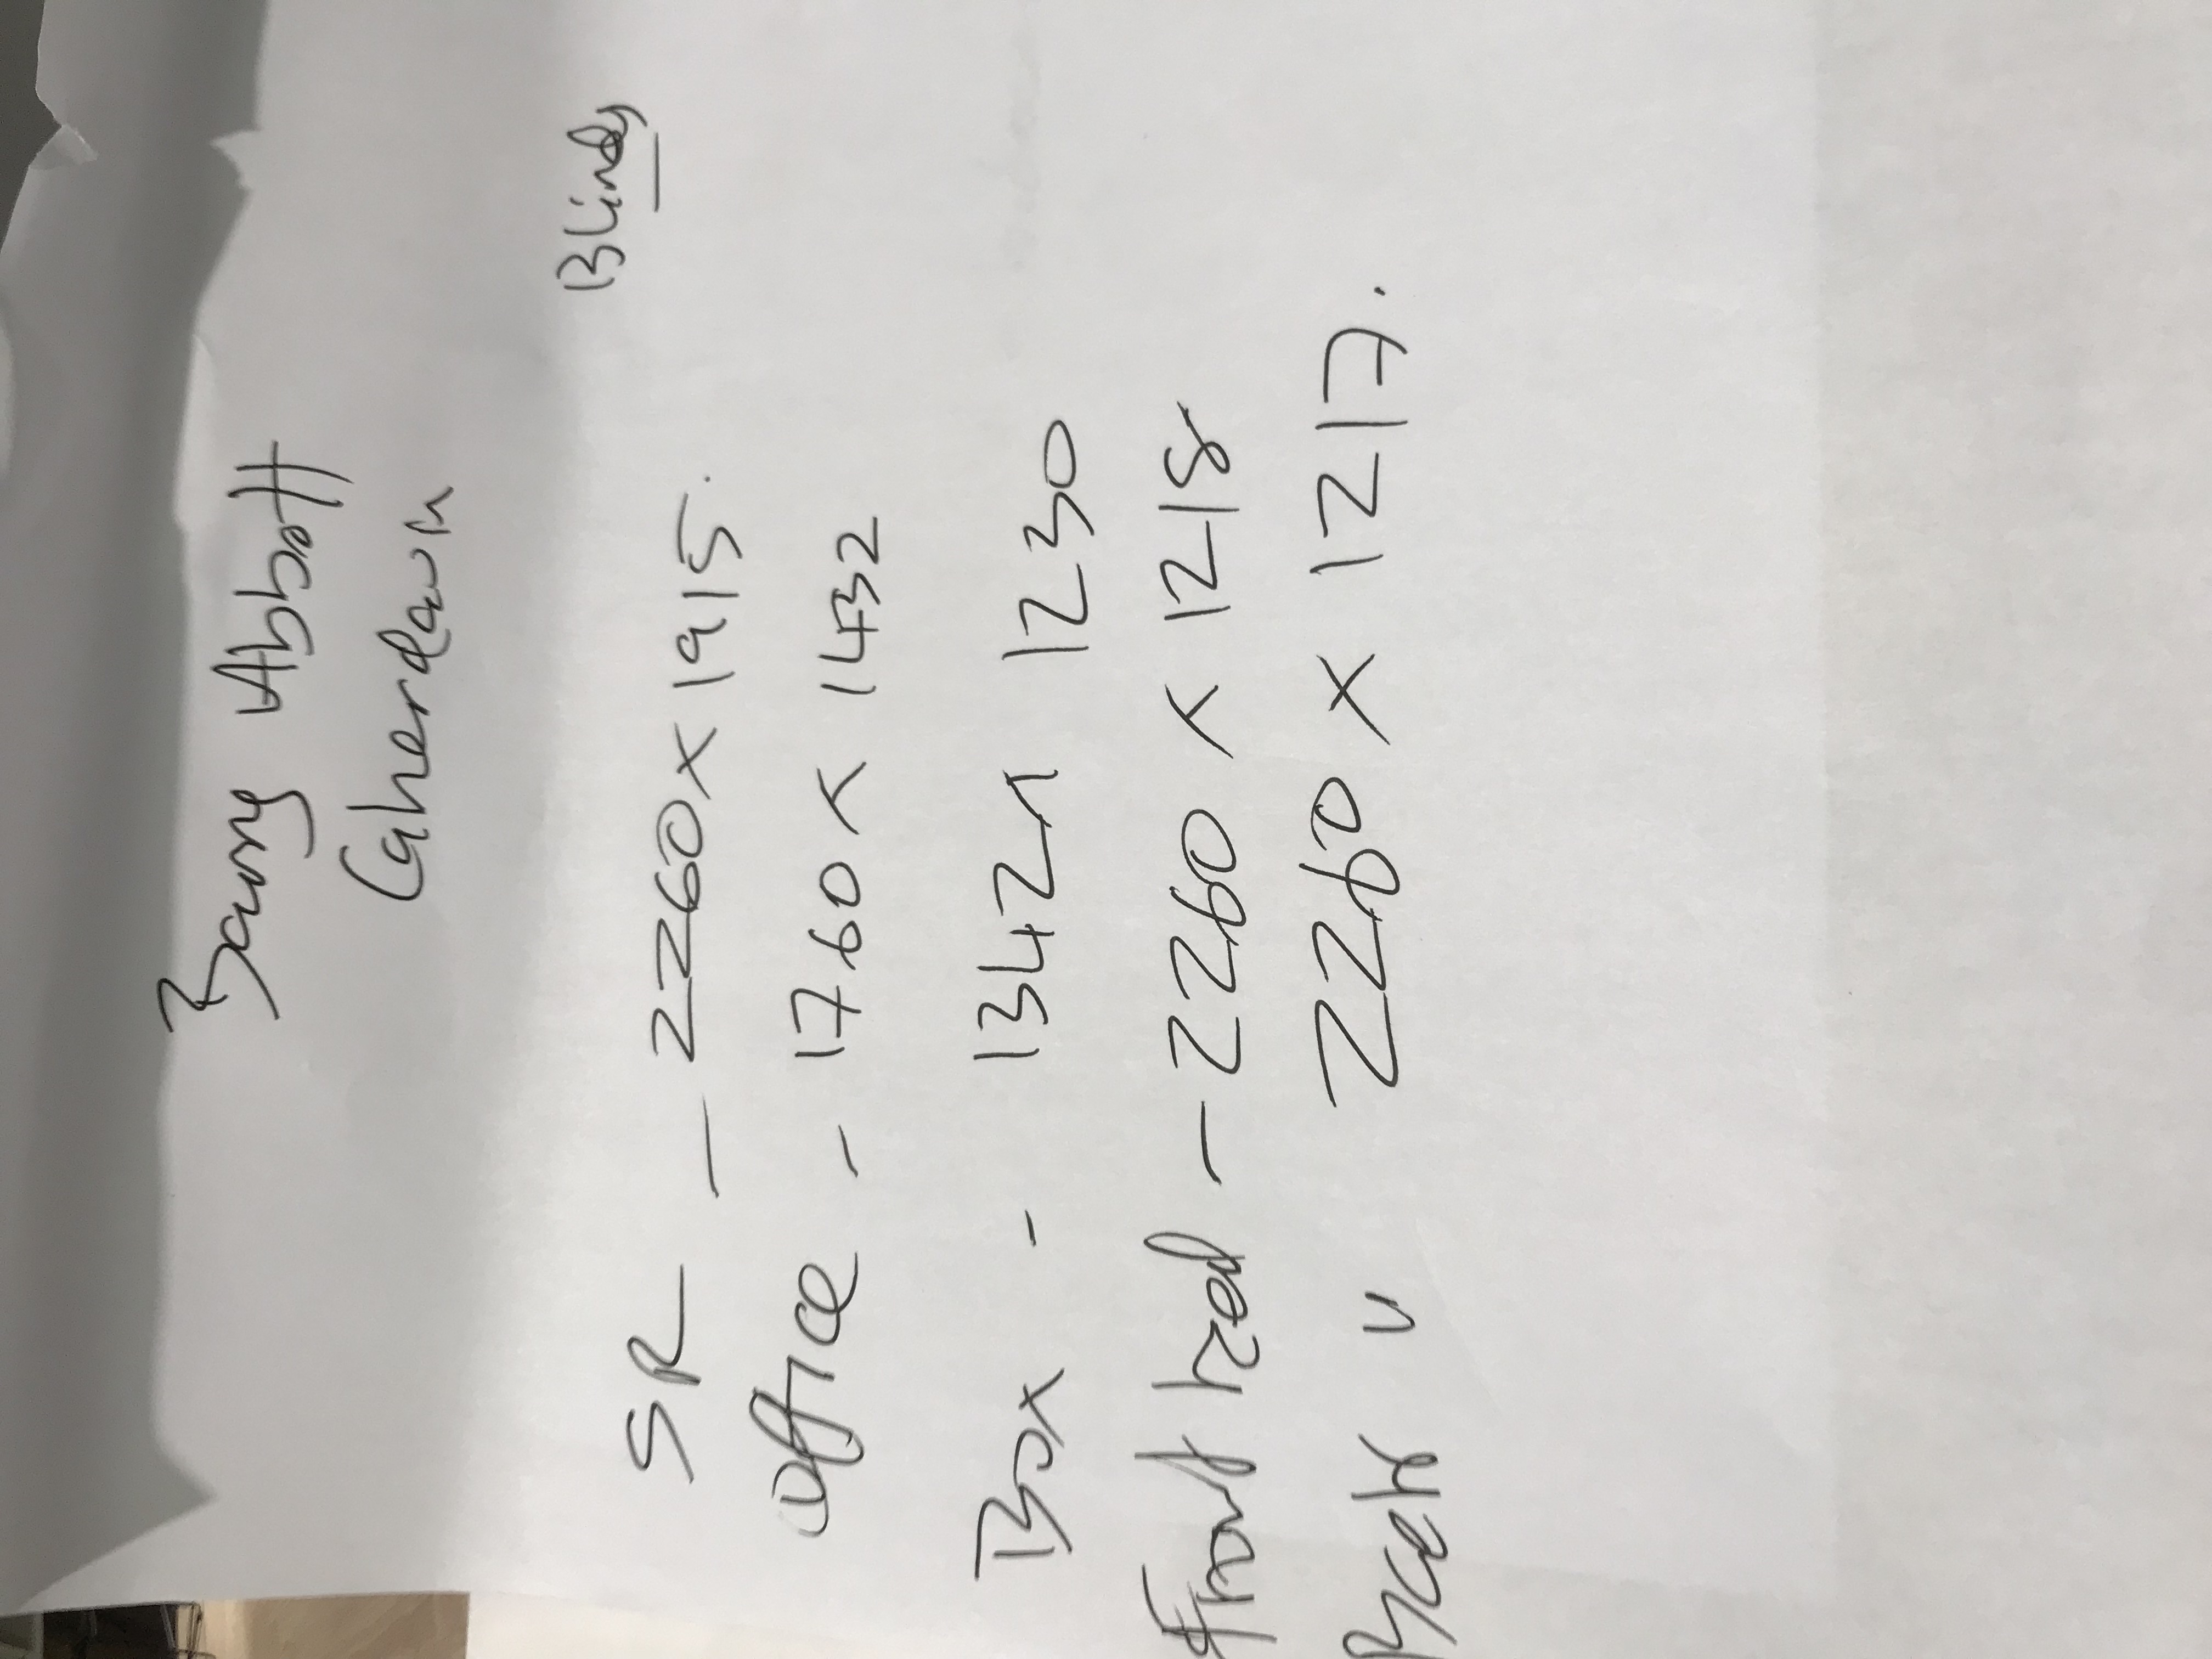 Barry Abbott
Caherdavin
Blinds
SR - 2260 x 1915.
Office - 1760 x 1432
Box - 1342 x 1230
Front bed - 2260 x 1218
Back " 2260 x 1217.